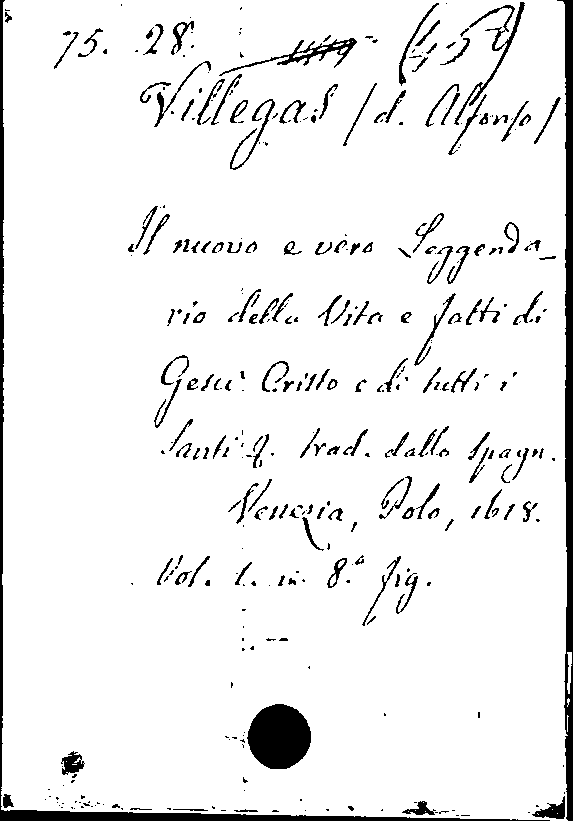 75. 28.
Villegas / d. Alfonso /
Il nuovo e vero Leggenda_
rio della Vita e fatti di
Gesù Cristo e di tutti i
Santi &. trad. dallo spagn.
Venezia, Polo, 1618.
Vol. 1. in 8.° fig.